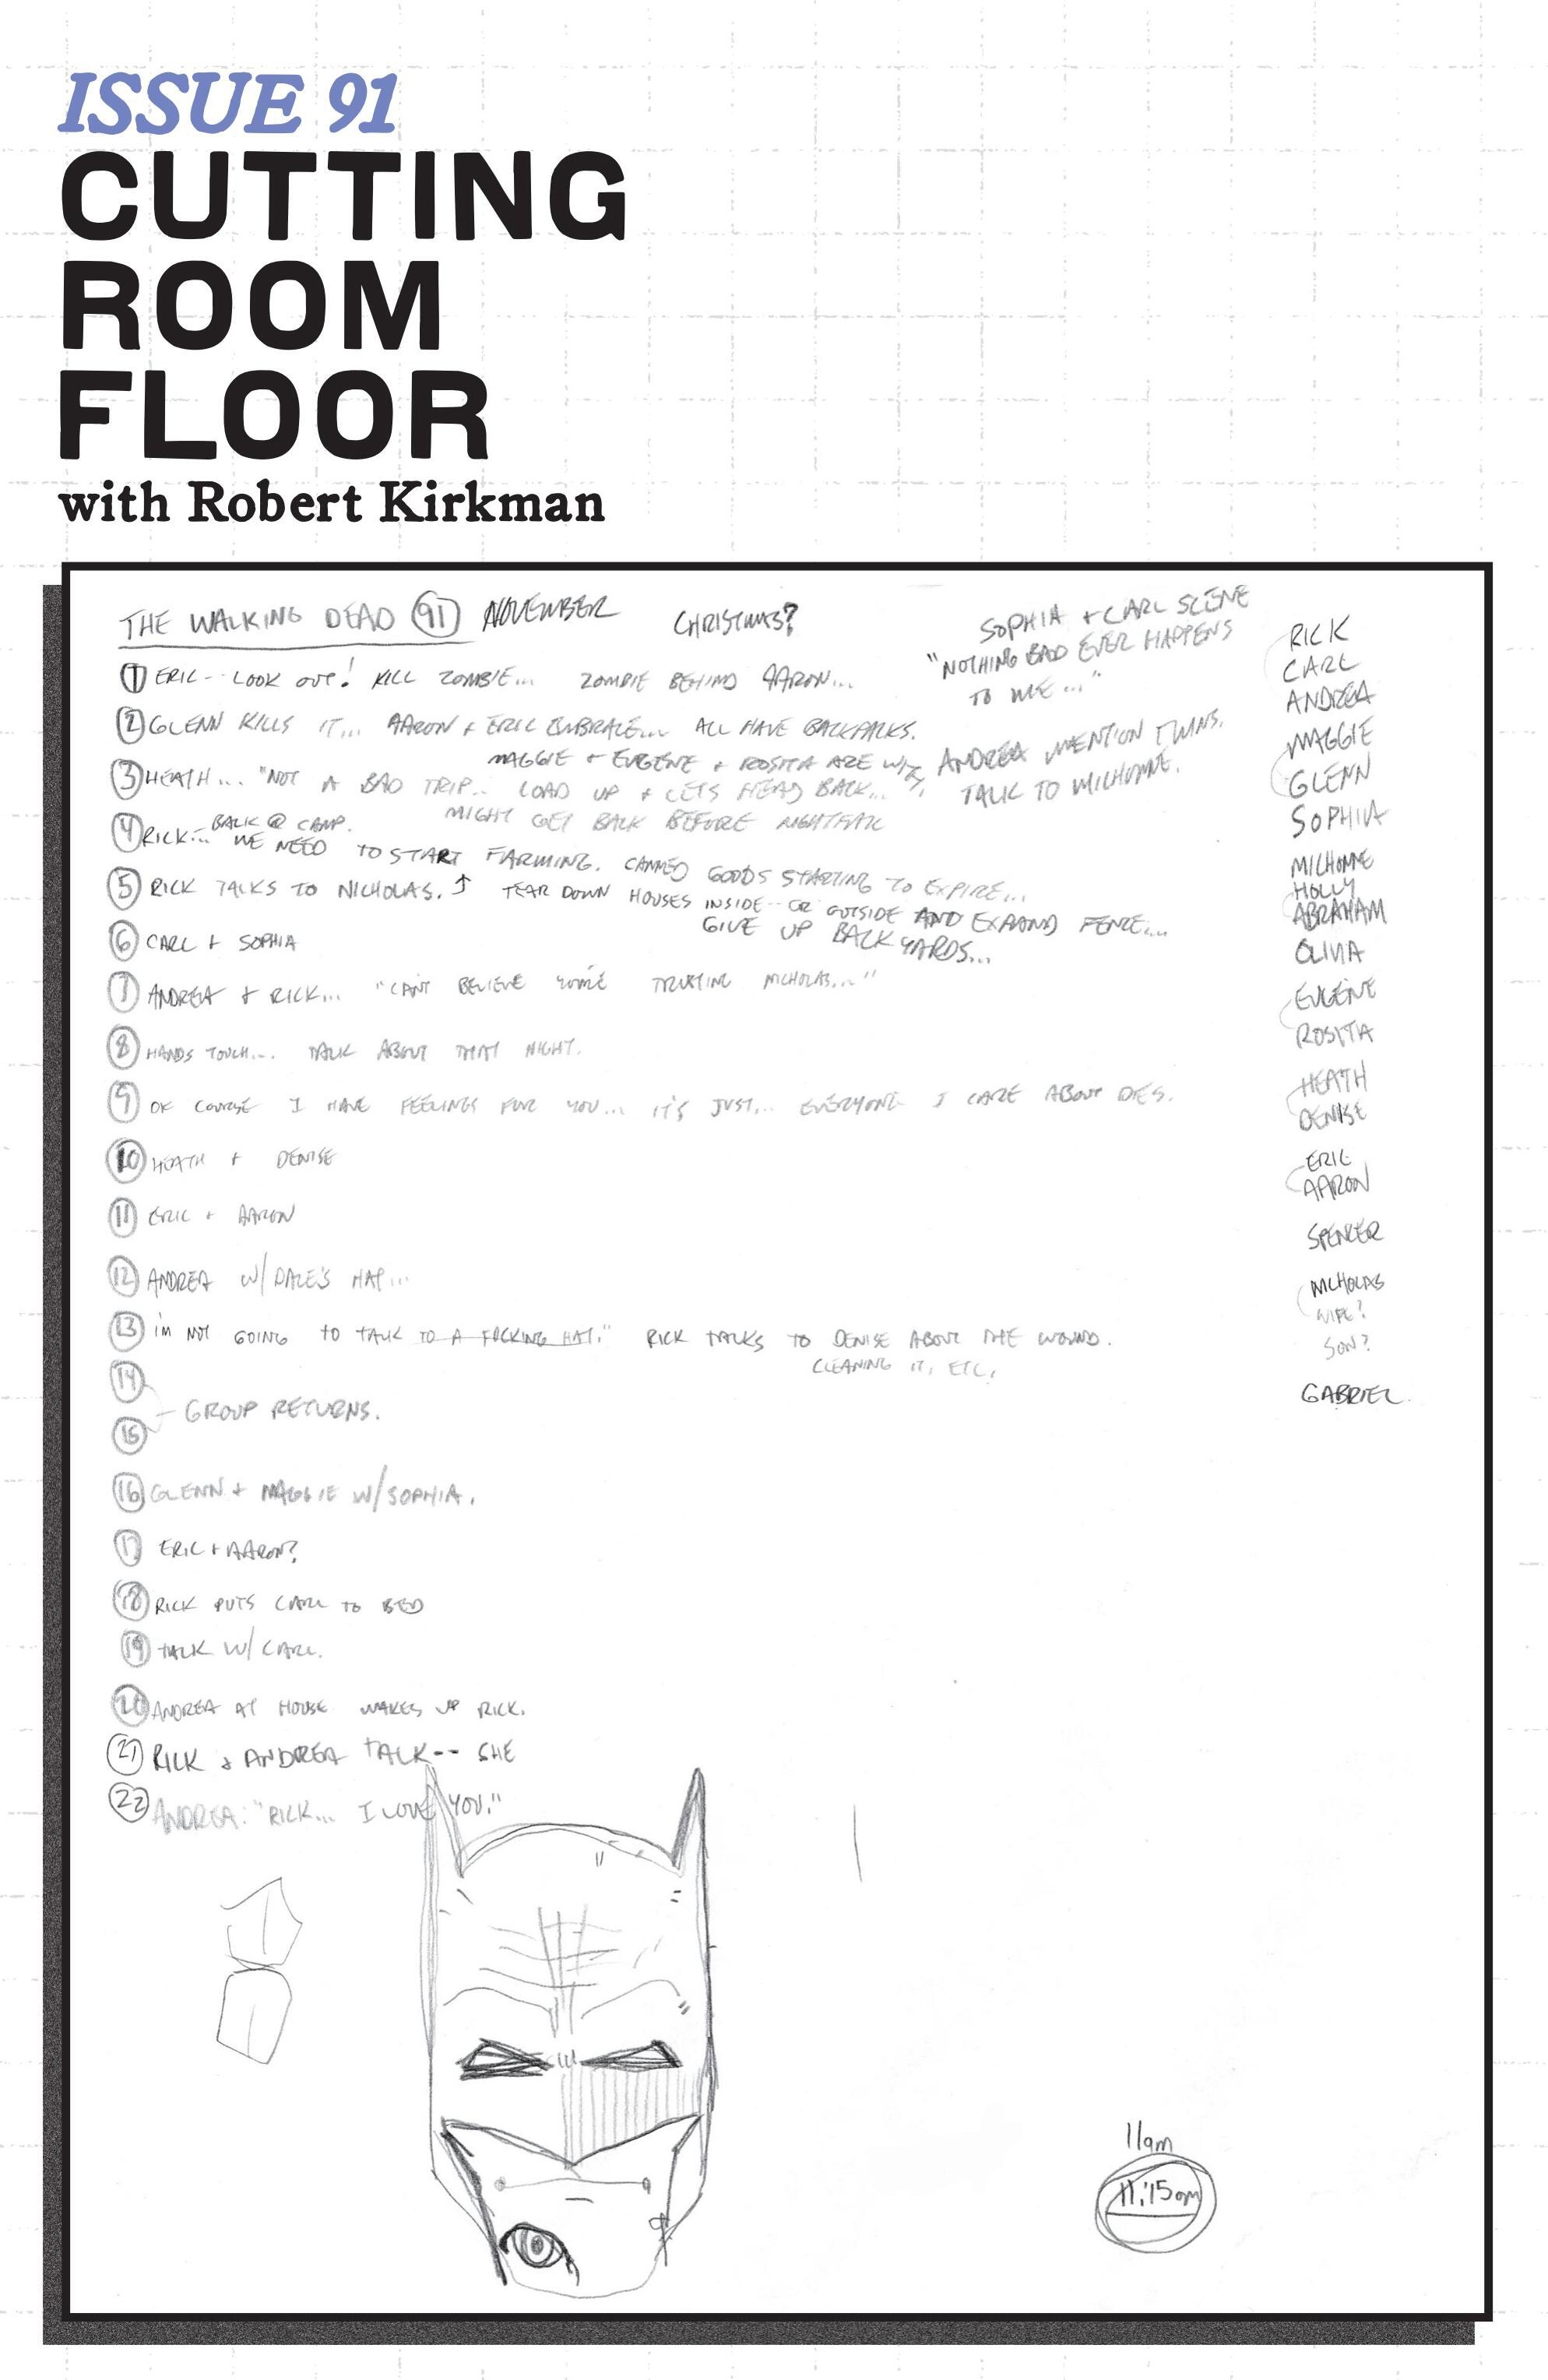 ISSUE 91
CUTTING
ROOM
FLOOR
with Robert Kirkman
THE WALKING DEAD 91 NOVEMBER CHRISTMAS?
SOPHIA + CARL SCENE
"NOTHING BAD EVER HAPPENS
TO ME..."
1 ERIC-- LOOK OUT! KILL ZOMBIE... ZOMBIE BEHIND AARON...
2 GLENN KILLS IT... AARON + ERIC EMBRACE... ALL HAVE BACKPACKS.
MAGGIE + EUGENE + ROSITA ARE W/
ANDREA MENTION TWINS.
TALK TO MICHONNE.
3 HEATH... "NOT A BAD TRIP.. LOAD UP + LETS HEAD BACK...
MIGHT GET BACK BEFORE NIGHTFALL
BACK @ CAMP.
4 RICK... WE NEED TO START FARMING. CANNED GOODS STARTING TO EXPIRE...
5 RICK TALKS TO NICHOLAS. ↑ TEAR DOWN HOUSES INSIDE-- OR OUTSIDE AND EXPAND FENCE...
GIVE UP BACK YARDS...
6 CARL + SOPHIA
7 ANDREA + RICK... "CAN'T BELIEVE YOU'RE TRUSTING NICHOLAS..."
8 HANDS TOUCH... TALK ABOUT THAT NIGHT.
9 OF COURSE I HAVE FEELINGS FOR YOU... IT'S JUST... EVERYONE I CARE ABOUT DIES.
10 HEATH + DENISE
11 ERIC + AARON
12 ANDREA W/ DALE'S HAT...
13 I'M NOT GOING TO TALK TO A FUCKING HAT." RICK TALKS TO DENISE ABOUT THE WOUND.
CLEANING IT, ETC.
14
15
GROUP RETURNS.
16 GLENN + MAGGIE W/ SOPHIA.
17 ERIC + AARON?
18 RICK PUTS CARL TO BED
19 TALK W/ CARL.
20 ANDREA AT HOUSE WAKES UP RICK.
21 RICK + ANDREA TALK-- SHE
22 ANDREA: "RICK... I LOVE YOU."
RICK
CARL
ANDREA
MAGGIE
GLENN
SOPHIA
MICHONNE
HOLLY
ABRAHAM
OLIVIA
EUGENE
ROSITA
HEATH
DENISE
ERIC
AARON
SPENCER
NICHOLAS
WIFE?
SON?
GABRIEL
11am
11:15am